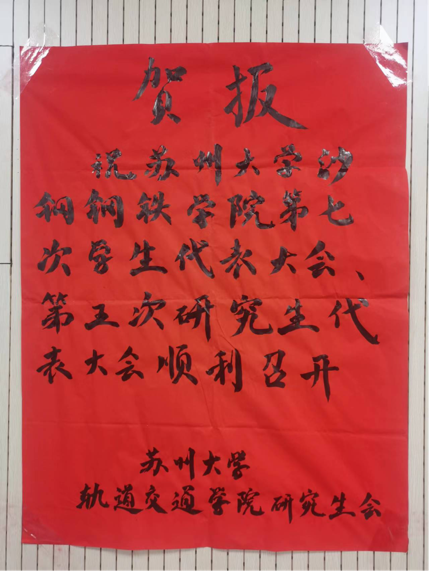 贺报
祝苏州大学沙
钢钢铁学院第七
次学生代表大会、
第五次研究生代
表大会顺利召开
苏州大学
轨道交通学院研究生会